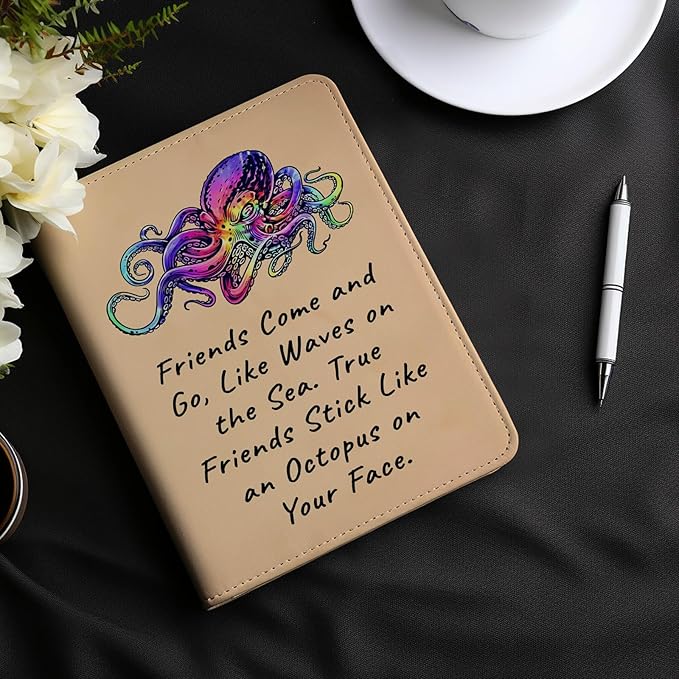 Friends Come and
Go, Like Waves on
the Sea. True
Friends Stick Like
an Octopus on
Your Face.